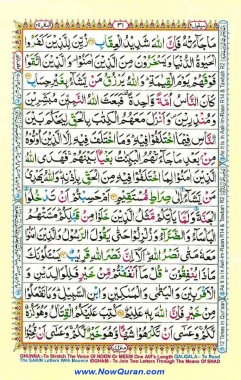 مَا جَآءَتْهُ فَاِنَّ اللّٰهَ شَدِيْدُ الْعِقَابِ زُيِّنَ لِلَّذِيْنَ كَفَرُوا
الْحَيٰوةُ الدُّنْيَا وَيَسْخَرُوْنَ مِنَ الَّذِيْنَ اٰمَنُوْا وَالَّذِيْنَ اتَّقَوْا
فَوْقَهُمْ يَوْمَ الْقِيٰمَةِ وَاللّٰهُ يَرْزُقُ مَنْ يَّشَآءُ بِغَيْرِ حِسَابٍ
كَانَ النَّاسُ اُمَّةً وَّاحِدَةً فَبَعَثَ اللّٰهُ النَّبِيّٖنَ مُبَشِّرِيْنَ
وَمُنْذِرِيْنَ وَاَنْزَلَ مَعَهُمُ الْكِتٰبَ بِالْحَقِّ لِيَحْكُمَ بَيْنَ
النَّاسِ فِيْمَا اخْتَلَفُوْا فِيْهِ وَمَا اخْتَلَفَ فِيْهِ اِلَّا الَّذِيْنَ اُوْتُوْهُ
مِنْۢ بَعْدِ مَا جَآءَتْهُمُ الْبَيِّنٰتُ بَغْيًاۢ بَيْنَهُمْ فَهَدَى اللّٰهُ
الَّذِيْنَ اٰمَنُوْا لِمَا اخْتَلَفُوْا فِيْهِ مِنَ الْحَقِّ بِاِذْنِهٖ وَاللّٰهُ يَهْدِيْ
مَنْ يَّشَآءُ اِلٰى صِرَاطٍ مُّسْتَقِيْمٍ اَمْ حَسِبْتُمْ اَنْ تَدْخُلُوا
الْجَنَّةَ وَلَمَّا يَاْتِكُمْ مَّثَلُ الَّذِيْنَ خَلَوْا مِنْ قَبْلِكُمْ مَسَّتْهُمُ
الْبَاْسَآءُ وَالضَّرَّآءُ وَزُلْزِلُوْا حَتّٰى يَقُوْلَ الرَّسُوْلُ وَالَّذِيْنَ اٰمَنُوْا
مَعَهٗ مَتٰى نَصْرُ اللّٰهِ اَلَآ اِنَّ نَصْرَ اللّٰهِ قَرِيْبٌ يَسْـَٔلُوْنَكَ
مَاذَا يُنْفِقُوْنَ قُلْ مَآ اَنْفَقْتُمْ مِّنْ خَيْرٍ فَلِلْوَالِدَيْنِ
وَالْاَقْرَبِيْنَ وَالْيَتٰمٰى وَالْمَسٰكِيْنِ وَابْنِ السَّبِيْلِ وَمَا تَفْعَلُوْا
مِنْ خَيْرٍ فَاِنَّ اللّٰهَ بِهٖ عَلِيْمٌ كُتِبَ عَلَيْكُمُ الْقِتَالُ وَهُوَ كُرْهٌ
لَّكُمْ وَعَسٰٓى اَنْ تَكْرَهُوْا شَيْـًٔا وَّهُوَ خَيْرٌ لَّكُمْ وَعَسٰٓى اَنْ
GHUNNA:-To Stretch The Voice Of NOON Or MEEM One Alif's Length QALQALA:- To Read
The SAKIN Letters With Bounce IDGHAM:- To Join Two Letters Through The Means Of SHAD
www.NowQuran.com